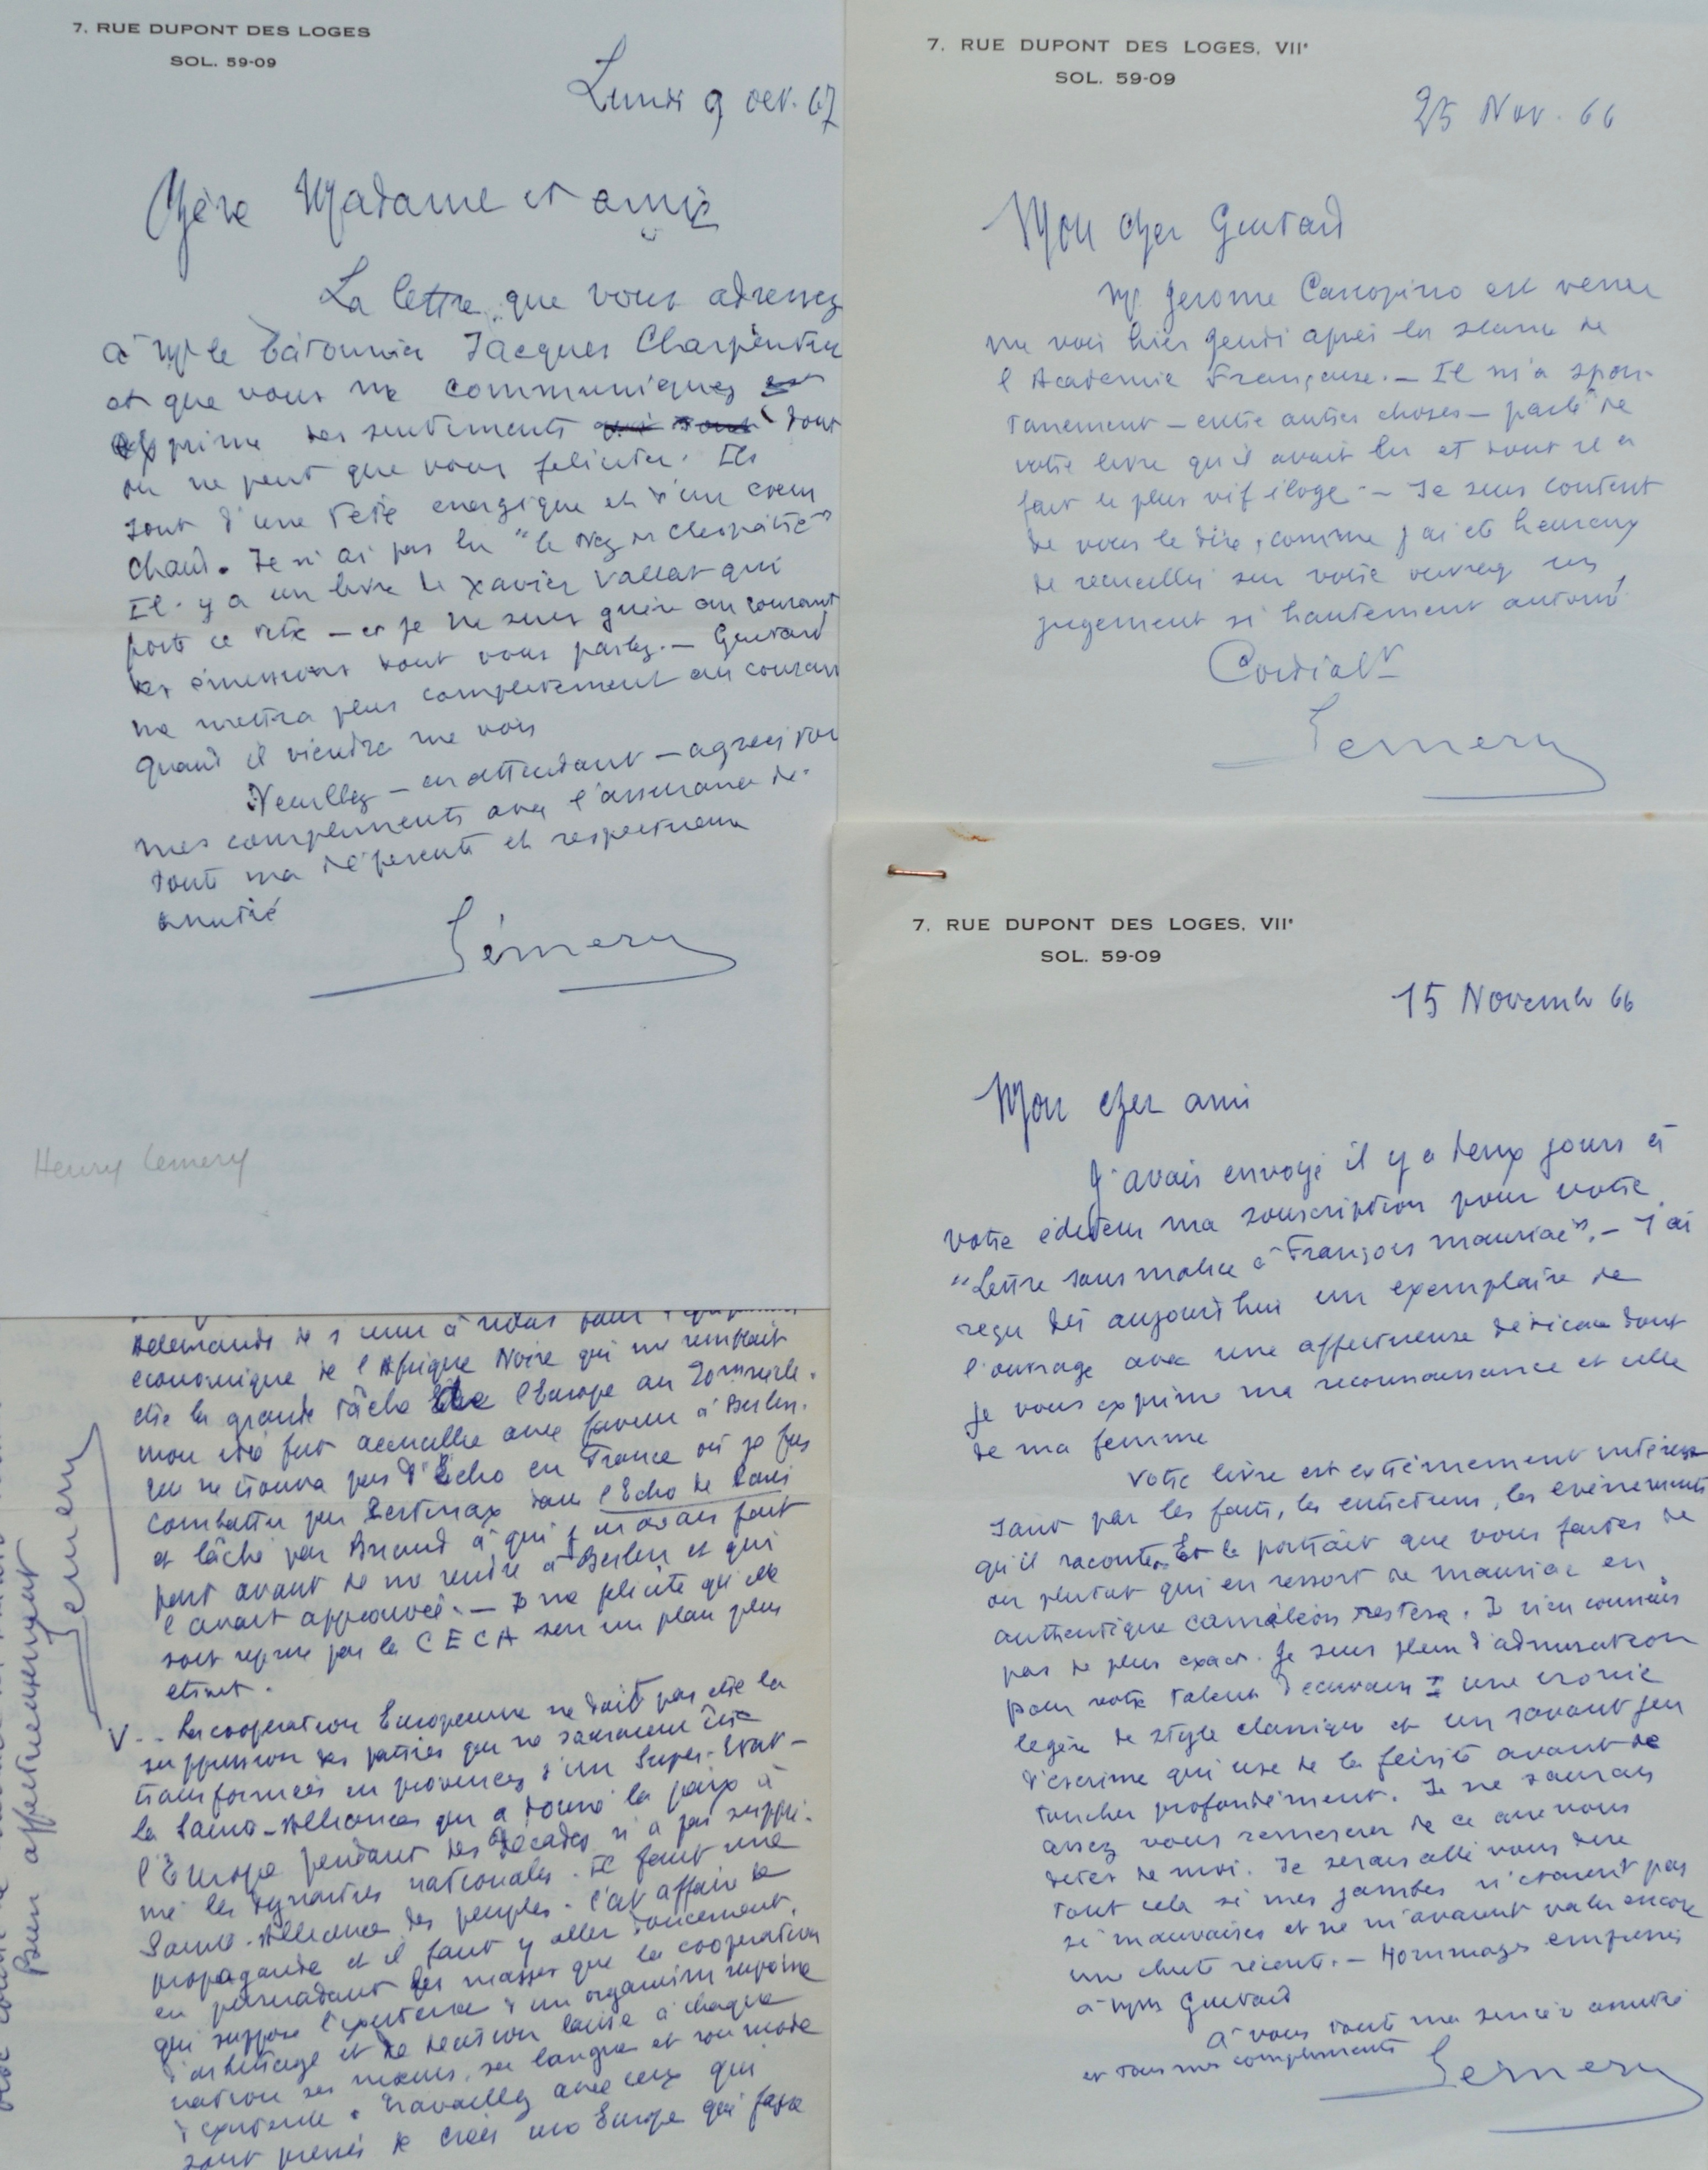 7. RUE DUPONT DES LOGES
SOL. 59-09
Lundi 9 oct. 67
Chère Madame et amie
La lettre que vous adressez
à Mr le bâtonnier Jacques Charpentier
et que vous me communiquez
exprime des sentiments dont
on ne peut que vous feliciter. Ils
sont d'une tête energique et d'un coeur
chaud. Je n'ai pas lu "le Nez de Cleopâtre"
Il y a un livre de Xavier Vallat qui
porte ce titre — et je ne suis guère au courant
des émissions dont vous parlez. — Guitard
me mettra plus completement au courant
quand il viendra me voir
Veuillez — en attendant — agreer tous
mes complements avec l'assurance de
toute ma déferente et respectueuse
amitié
Lémery
Henry Lemery
7. RUE DUPONT DES LOGES. VIIe
SOL. 59-09
25 Nov. 66
Mon cher Guitard
Mr Jerome Carcopino est venu
me voir hier jeudi après la seance de
l'Academie Française. — Il m'a spon-
tanement — entre autres choses — parlé de
votre livre qu'il avait lu et dont il a
fait le plus vif éloge — Je suis content
de vous le dire, comme j'ai été heureux
de recueillir sur votre ouvrage un
jugement si hautement autorisé
Cordialt
Lemery
7. RUE DUPONT DES LOGES. VIIe
SOL. 59-09
15 Novembre 66
Mon cher ami
J'avais envoyé il y a deux jours à
votre éditeur ma souscription pour votre
"Lettre sans malice à François Mauriac". — J'ai
reçu dès aujourd'hui un exemplaire de
l'ouvrage avec une affectueuse dédicace dont
je vous exprime ma reconnaissance et celle
de ma femme
Votre livre est extrêmement intéressant
tant par les faits, les entretiens, les evènements
qu'il raconte. Et le portrait que vous faites de
ou plutôt qui en ressort de Mauriac en
authentique caméléon restera. Je n'en connais
pas de plus exact. Je suis plein d'admiration
pour votre talent d'ecrivain : une ironie
legère de style classique et un savant jeu
d'escrime qui use de la feinte avant de
toucher profondément. Je ne saurais
assez vous remercier de ce que vous
dites de moi. Je serais allé vous dire
tout cela si mes jambes n'etaient pas
si mauvaises et ne m'avaient valu encore
une chute récente. — Hommages empressés
à Mme Guitard
à vous toute ma sincère amitié
et tous mes complements
Lemery
Allemande de s'unir à nous pour l'equipement
economique de l'Afrique Noire qui me semblait
être la grande tâche de l'Europe au 20me siecle.
Mon idée fut accueillie avec faveur à Berlin.
Elle ne trouva pas d'Echo en France où je fus
combattu par Pertinax dans l'Echo de Paris
et lâché par Briand à qui j'en avais fait
part avant de me rendre à Berlin et qui
l'avait approuvée. — Je me félicite qu'elle
soit reprise par la CECA sur un plan plus
étroit.
V... La cooperation Européenne ne doit pas être la
suppression des patries qui ne sauraient être
transformées en provinces d'un Super-Etat —
la Sainte-Alliance qui a donné la paix à
l'Europe pendant des décades n'a pas suppri-
mé les dynasties nationales. Il faut une
Sainte-Alliance des peuples. C'est affaire de
propagande et il faut y aller doucement,
en persuadant les masses que la cooperation
qui suppose l'existence d'un organisme suprême
d'arbitrage et de decision laisse à chaque
nation ses moeurs, sa langue et son mode
d'existence. Travaillez avec ceux qui
sont pressés de créer une Europe qui fasse
Bien affectueusement
Lemery